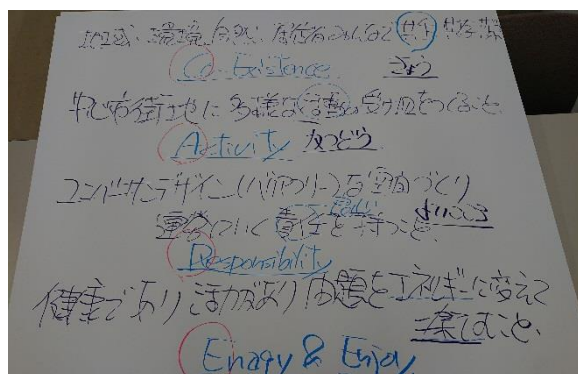 地域、環境、自然、居住者みんなで共存
Co-Existence きょう
中心市街地に多様な活動の受け皿をつくること
Activity かつどう
ユニバーサルデザイン(バリアフリー)な空間づくり
運営していく責任を持つこと、
Responsibility
健康であり活力があり問題をエネルギーに変えて
楽しむこと、
Enagy & Enjoy